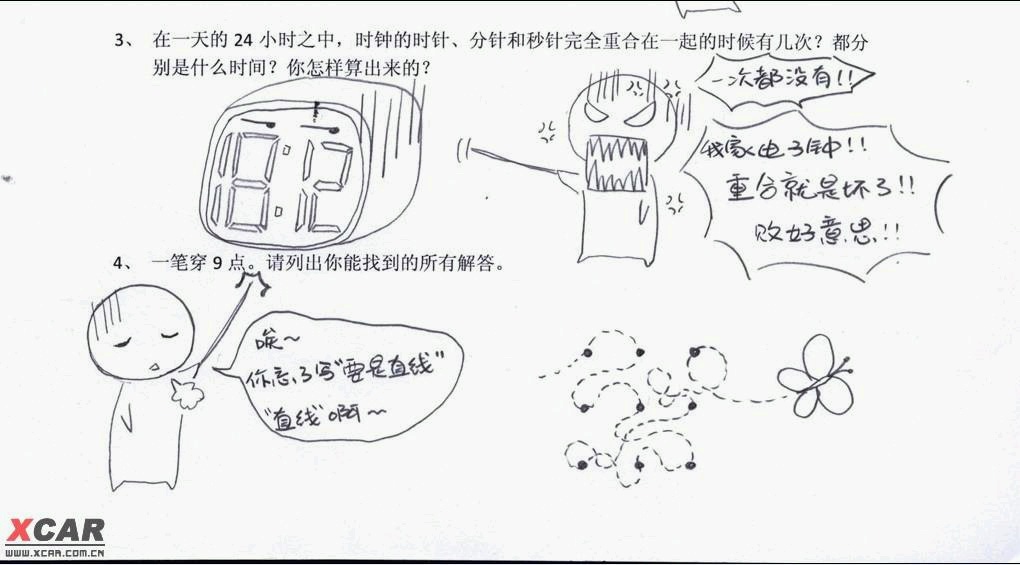 3、 在一天的 24 小时之中，时钟的时针、分针和秒针完全重合在一起的时候有几次？都分
别是什么时间？你怎样算出来的？
一次都没有!!
我家电子钟!!
重合就是坏了!!
败好意思!!
18:12
4、 一笔穿 9 点。请列出你能找到的所有解答。
唉~
你忘了写“要是直线”
“直线”啊~
XCAR
WWW.XCAR.COM.CN